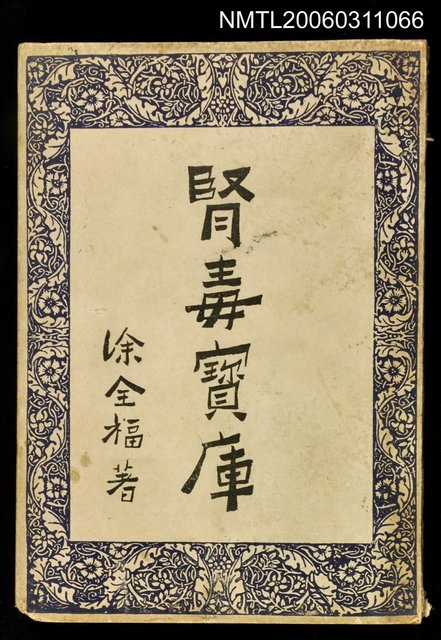 NMTL20060311066
腎毒寶庫
徐全福著